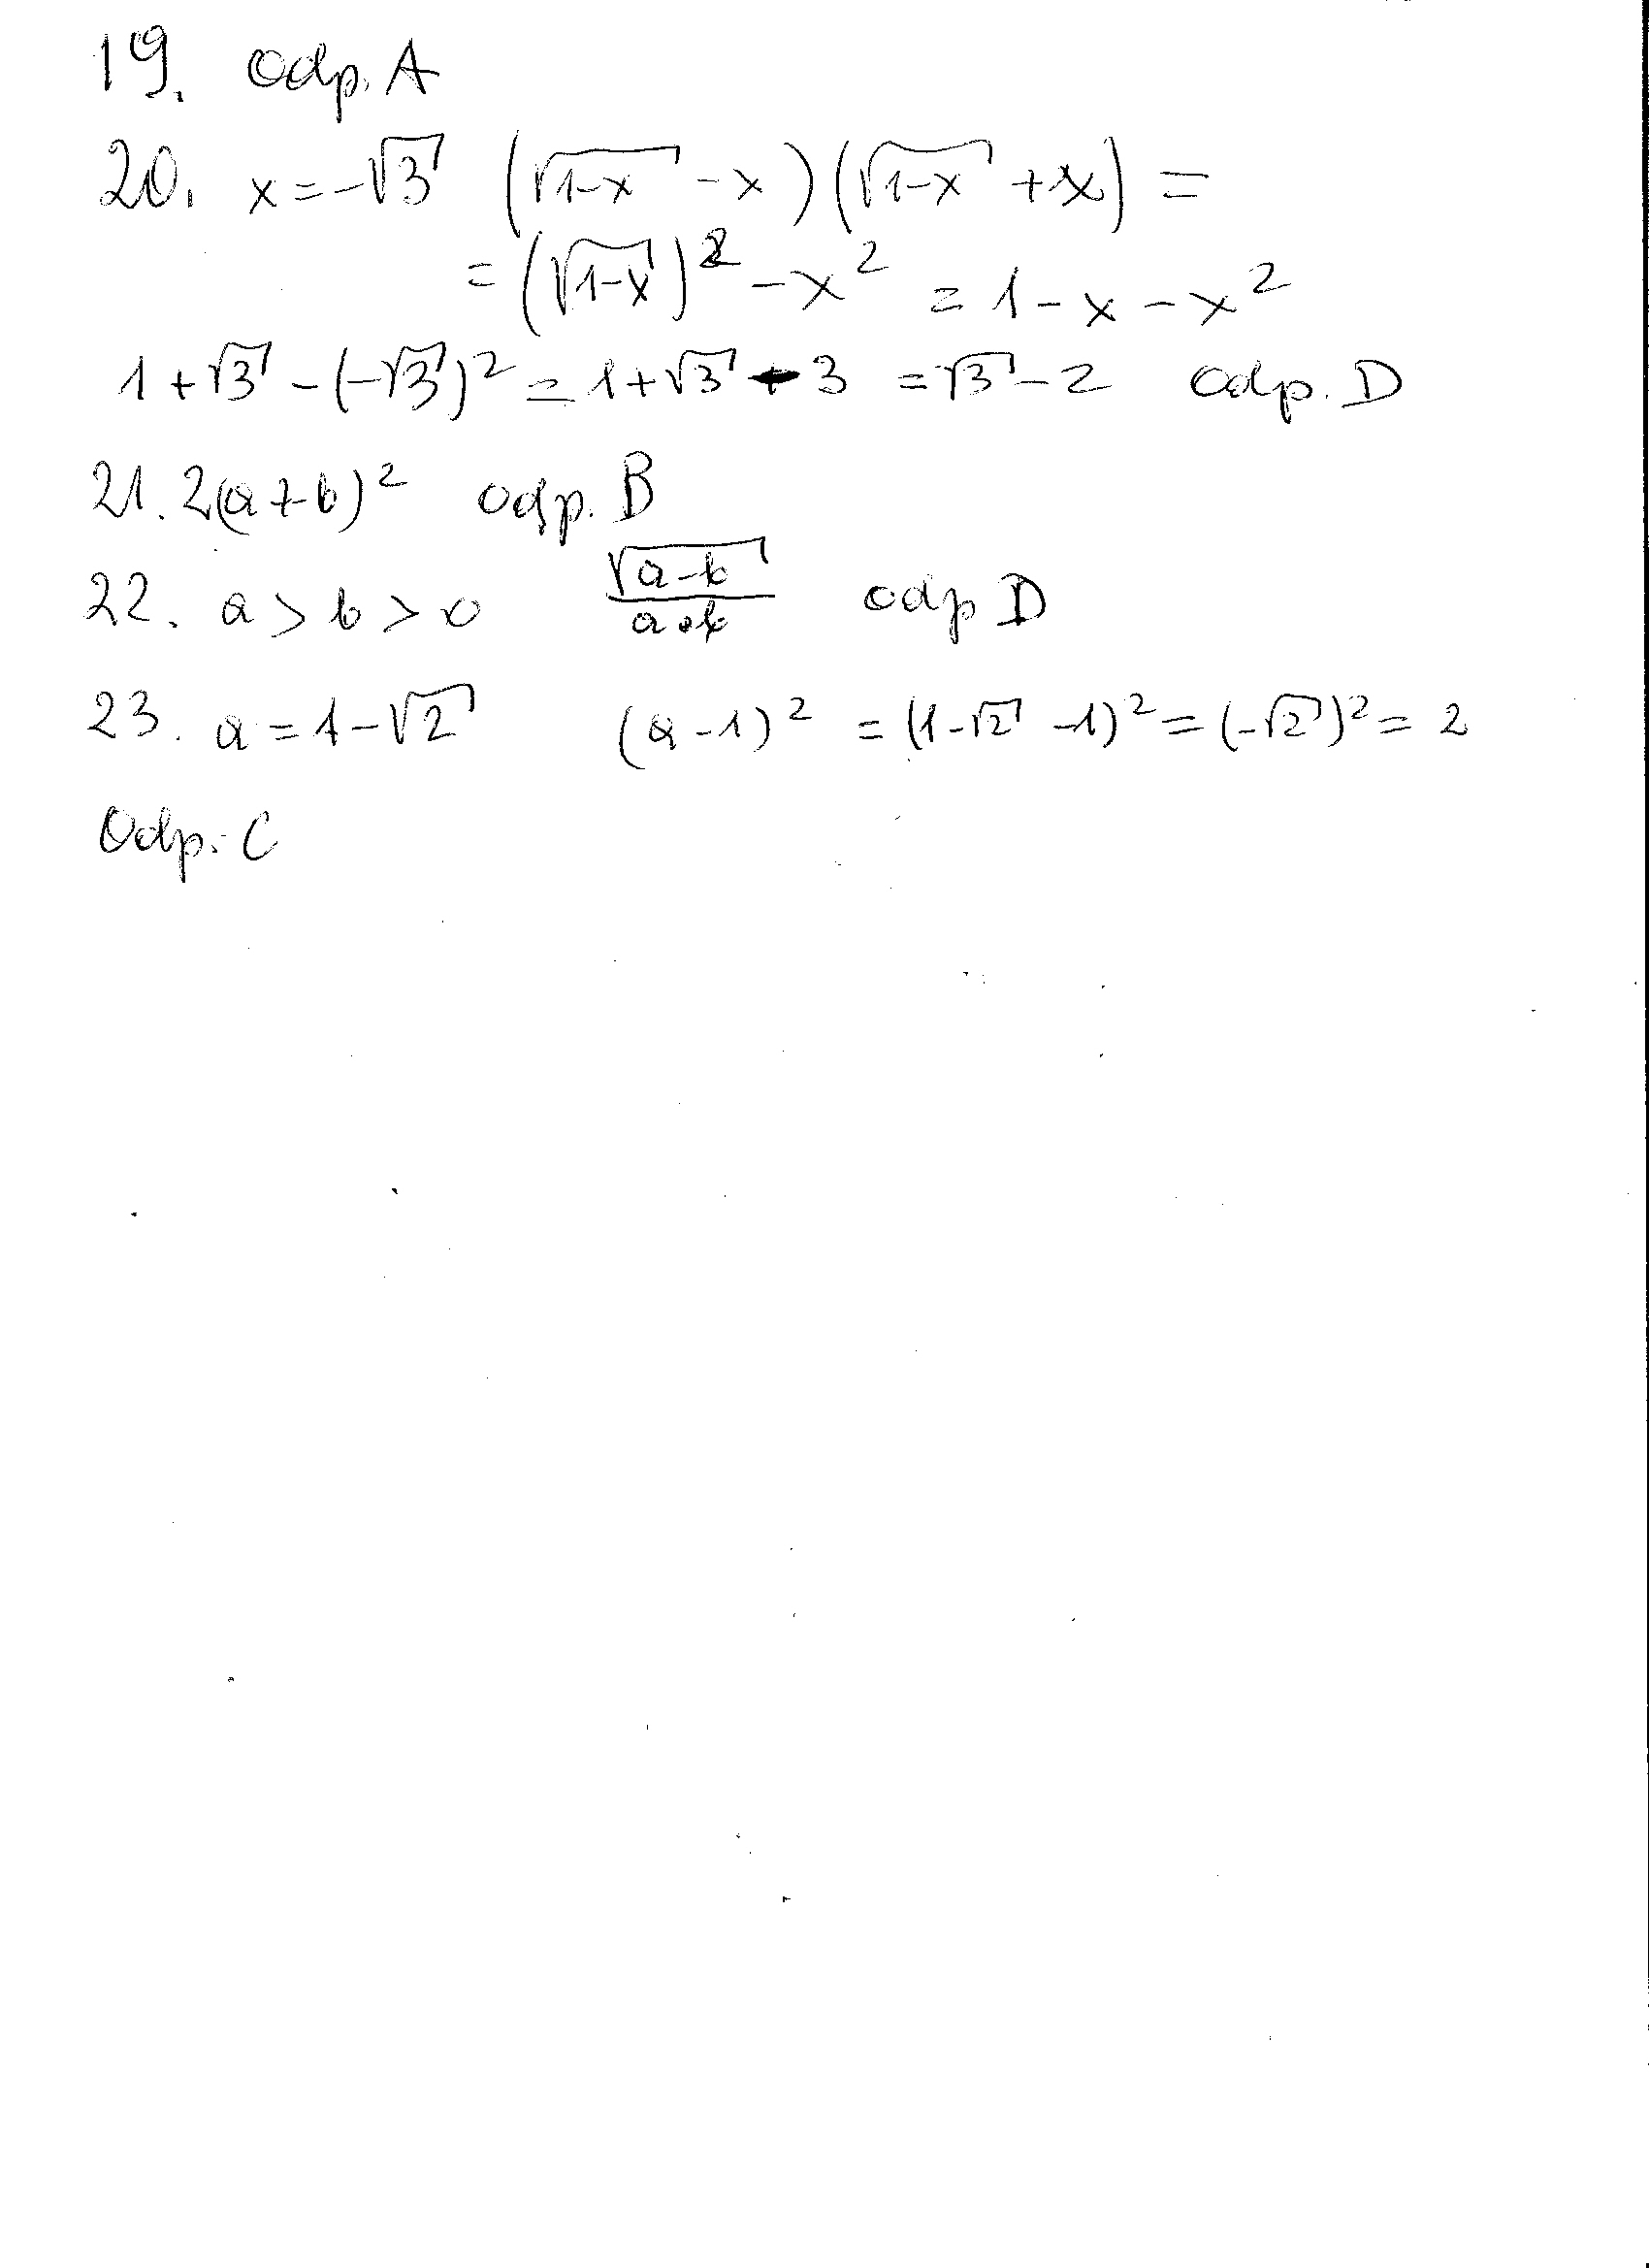 19. Odp. A
20. x = -√3 (√(1-x) - x)(√(1-x) + x) =
= (√(1-x))² - x² = 1 - x - x²
1 + √3 - (-√3)² = 1 + √3 - 3 = √3 - 2 Odp. D
21. 2(a+b)² Odp. B
22. a > b > 0 √(a-b)/(a·b) Odp D
23. a = 1 - √2 (a-1)² = (1-√2 -1)² = (-√2)² = 2
Odp. C